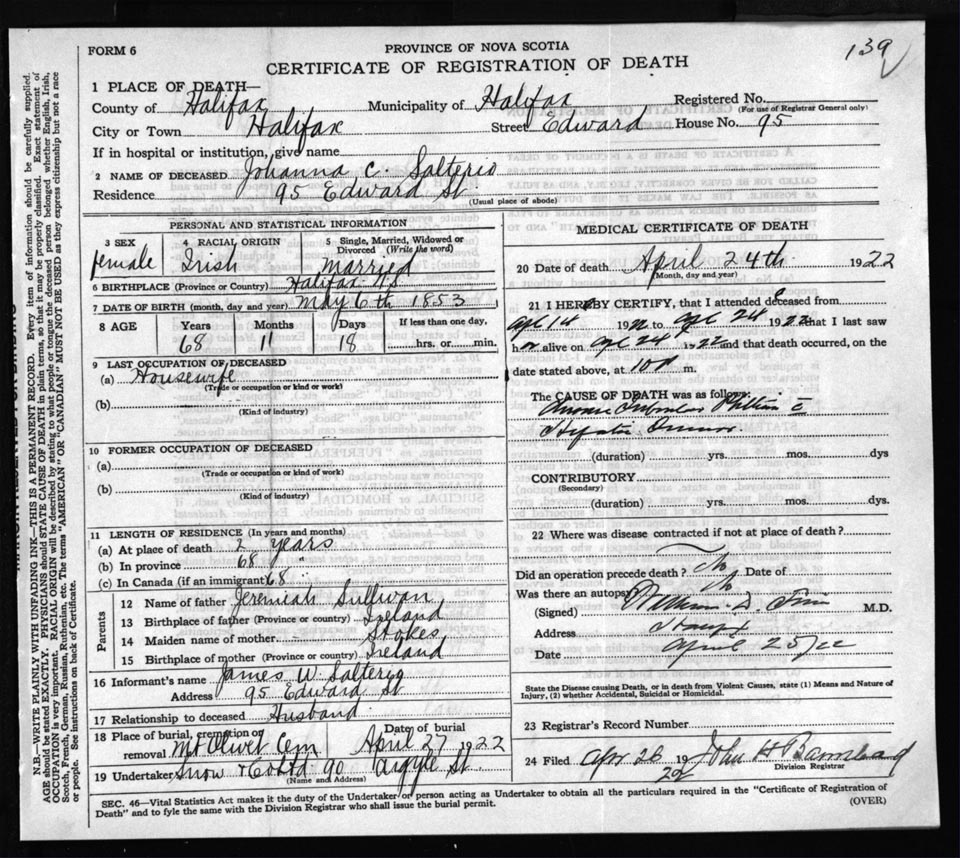 139
FORM 6
PROVINCE OF NOVA SCOTIA
CERTIFICATE OF REGISTRATION OF DEATH
1 PLACE OF DEATH—
County of Halifax Municipality of Halifax Registered No.
(For use of Registrar General only)
City or Town Halifax Street Edward House No. 95
If in hospital or institution, give name
2 NAME OF DECEASED Johanna C. Salterio
Residence 95 Edward St.
(Usual place of abode)
PERSONAL AND STATISTICAL INFORMATION
3 SEX 4 RACIAL ORIGIN 5 Single, Married, Widowed or Divorced (Write the word)
female Irish Married
6 BIRTHPLACE (Province or Country) Halifax NS
7 DATE OF BIRTH (month, day and year) May 6th 1853
8 AGE Years Months Days If less than one day,
68 11 18 hrs. or min.
9 LAST OCCUPATION OF DECEASED
(a) Housewife
(Trade or occupation or kind or work)
(b)
(Kind of industry)
10 FORMER OCCUPATION OF DECEASED
(a)
(Trade or occupation or kind of work)
(b)
(Kind of industry)
11 LENGTH OF RESIDENCE (In years and months)
(a) At place of death 2 years
(b) In province 68 "
(c) In Canada (if an immigrant) 68 "
Parents
12 Name of father Jeremiah Sullivan
13 Birthplace of father (Province or country) Ireland
14 Maiden name of mother Stokes
15 Birthplace of mother (Province or country) Ireland
16 Informant's name James W. Salterio
Address 95 Edward St
17 Relationship to deceased Husband
18 Place of burial, cremation or removal Mt Olivet Cem Date of burial April 27 1922
19 Undertaker Snow & Co Ltd 90 Argyle St.
(Name and Address)
MEDICAL CERTIFICATE OF DEATH
20 Date of death April 24th 1922
(Month, day and year)
21 I HEREBY CERTIFY, that I attended deceased from
Apl 14 1922 to Apl 24 1922 that I last saw
h er alive on Apl 24 1922 and that death occurred, on the
date stated above, at 10 m.
The CAUSE OF DEATH was as follows:
(duration) yrs. mos. dys
CONTRIBUTORY
(Secondary)
(duration) yrs. mos. dys.
22 Where was disease contracted if not at place of death?
Did an operation precede death? No Date of
Was there an autopsy? No
(Signed) William D. M.D.
Address
Date April 25/22
State the Disease causing Death, or in death from Violent Causes, state (1) Means and Nature of Injury, (2) whether Accidental, Suicidal or Homicidal.
23 Registrar's Record Number
24 Filed Apr 26 1922 John H Barnstead
Division Registrar
SEC. 46—Vital Statistics Act makes it the duty of the Undertaker or person acting as Undertaker to obtain all the particulars required in the "Certificate of Registration of Death" and to fyle the same with the Division Registrar who shall issue the burial permit.
(OVER)
N.B.—WRITE PLAINLY WITH UNFADING INK—THIS IS A PERMANENT RECORD. Every item of information should be carefully supplied.
AGE should be stated EXACTLY. PHYSICIANS should STATE CAUSE OF DEATH in plain terms, so that it may be properly classified. Exact statement of
OCCUPATION is very important. RACIAL ORIGIN will be described by stating to what people or tongue the deceased person belonged whether English, Irish,
Scotch, French, German, Russian, Ruthenian, etc. The terms "AMERICAN" OR "CANADIAN" MUST NOT BE USED as they express citizenship but not a race
or people. See instructions on back of Certificate.